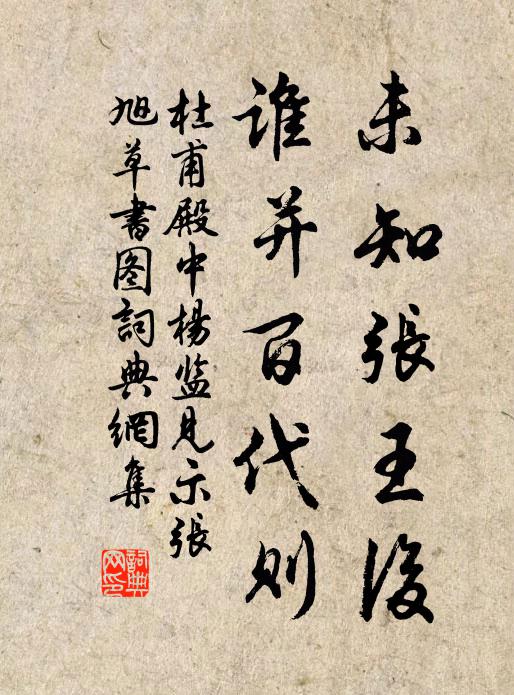 未知張王後
誰并百代則
杜甫殿中楊监見示張
旭草書图詞典網集
詞典網印